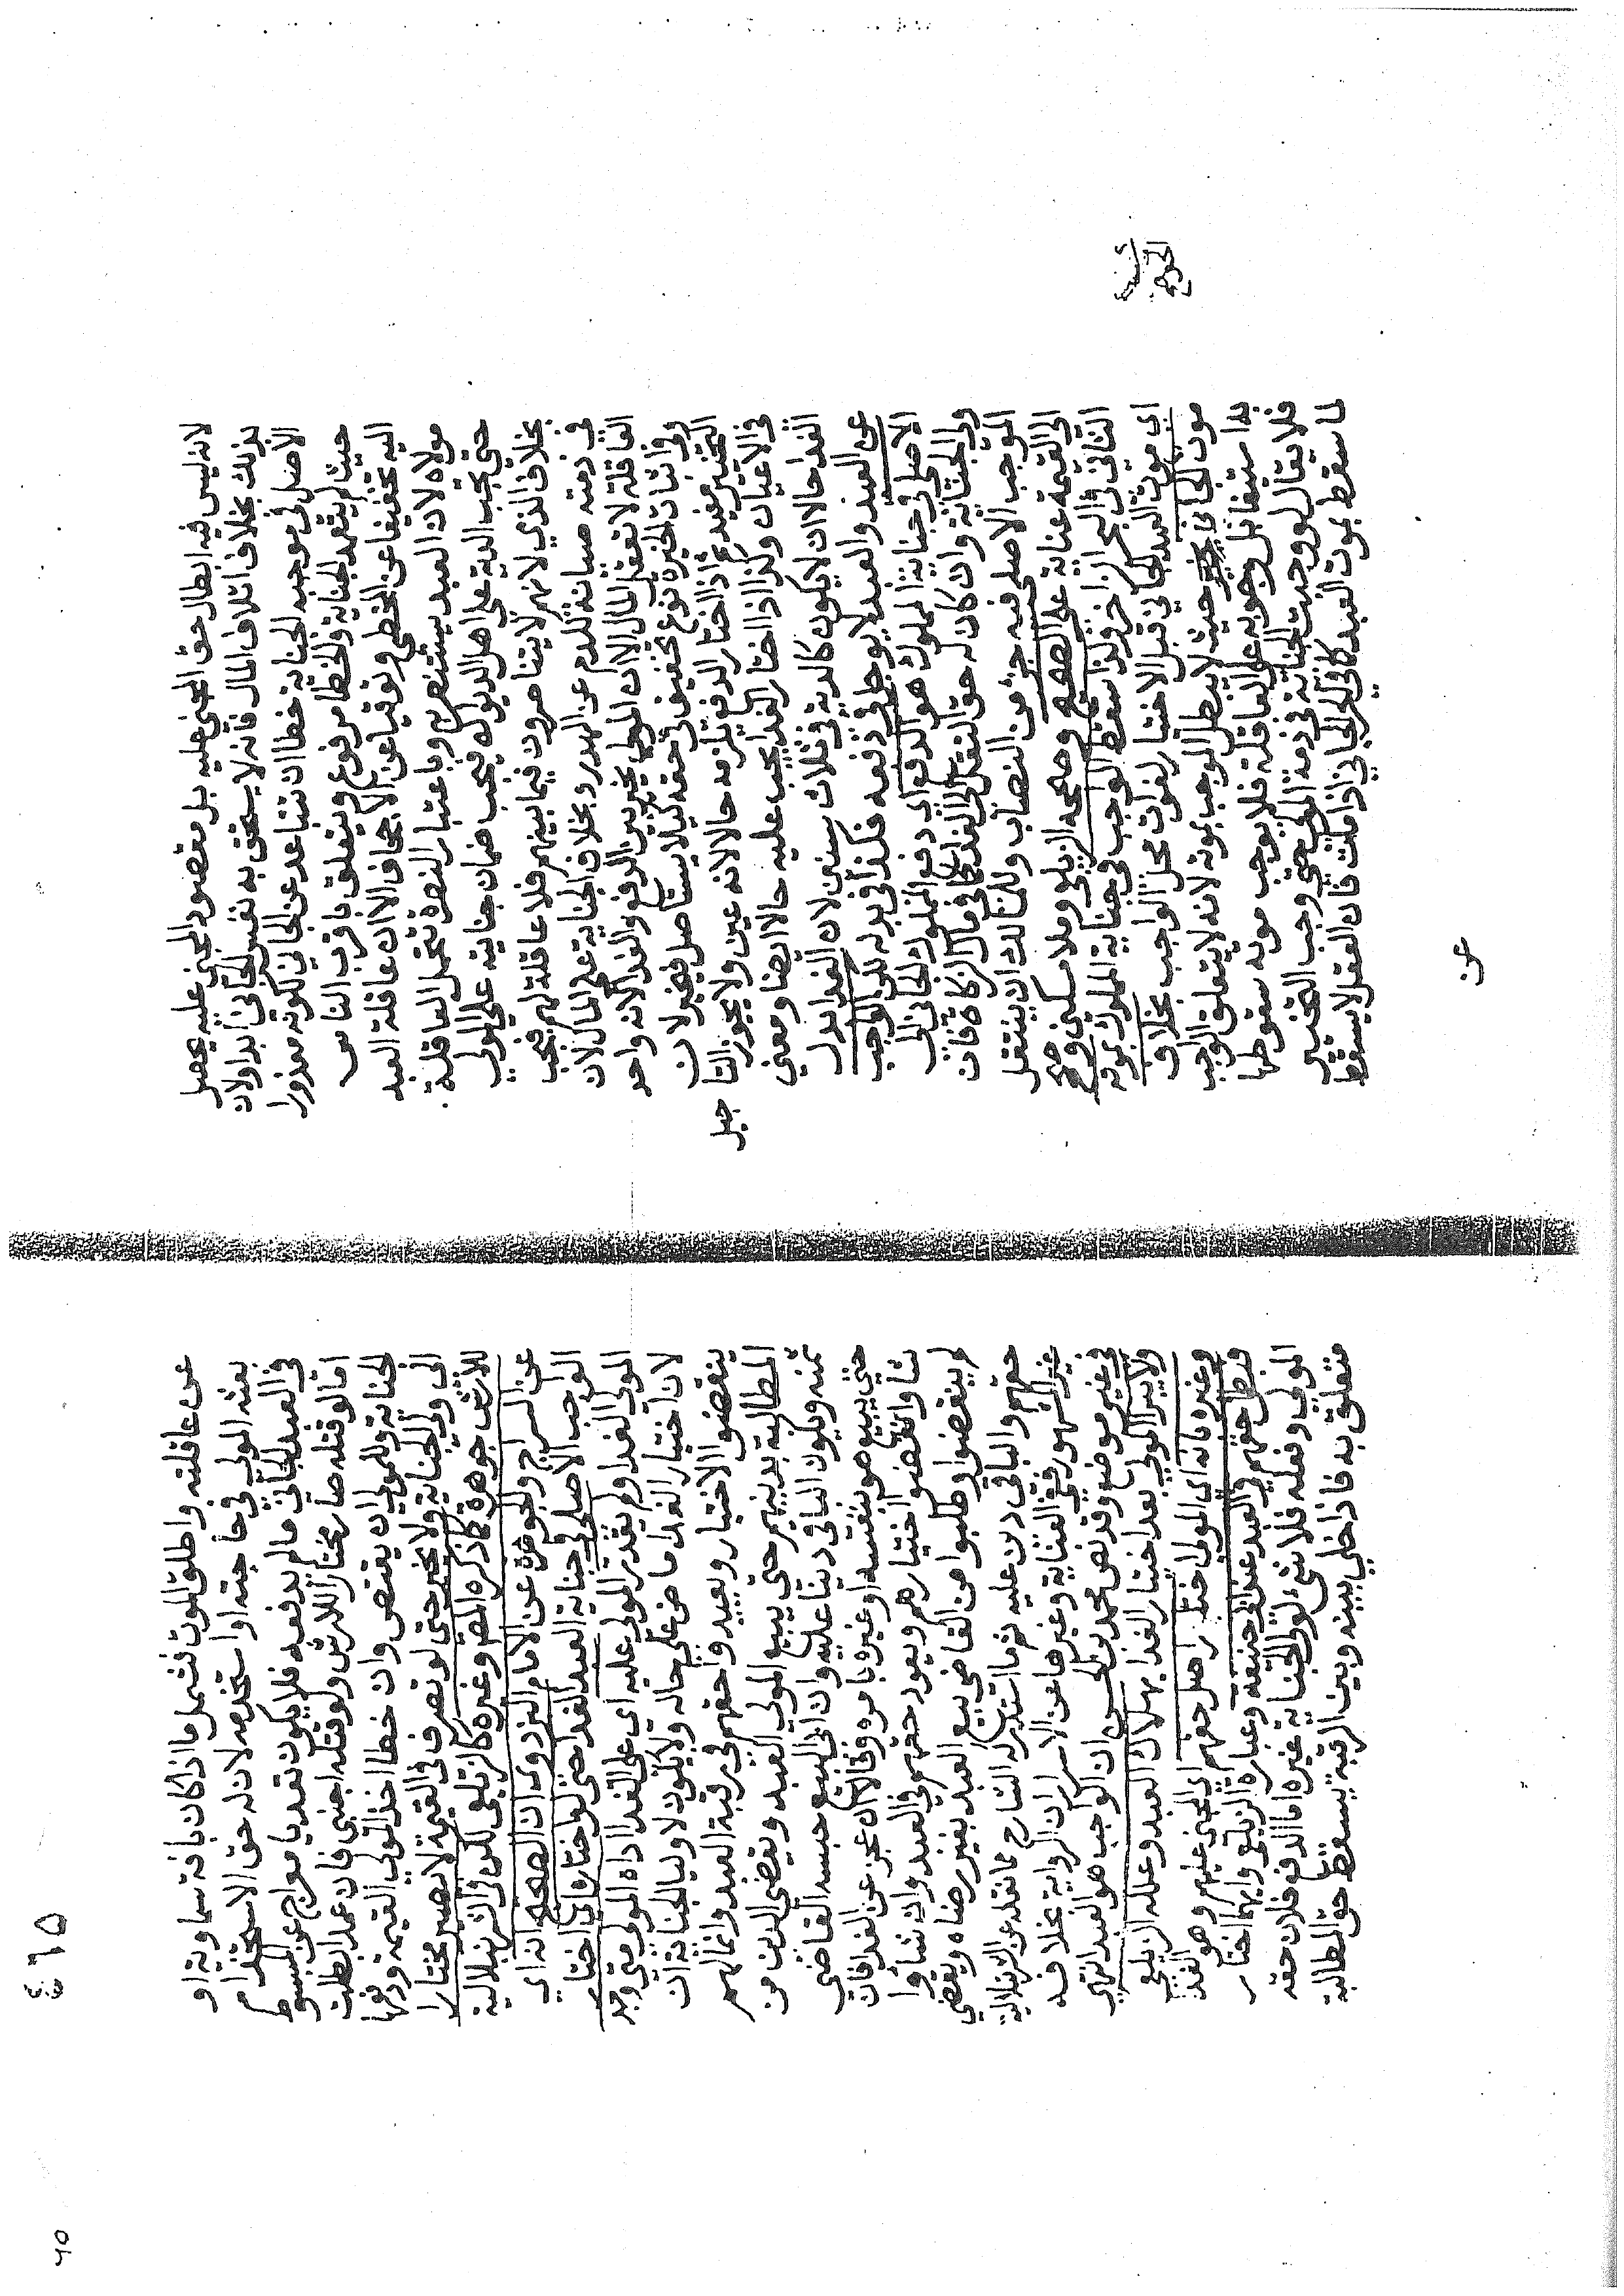 لانه ليس فيه ابطال حق المجني عليه بل مقصود المجني عليه يحصل
بذلك بخلاف اتلاف المال فانه لا يستحق به نفس الجاني ابدا ولان
الاصل في موجب الجناية خطا ان تتباعد عن الجاني لكونه معذورا
حيث لم يتعمد الجناية والخطا مرفوع ويتعلق باقرب الناس
اليه تخفيفا عن المخطي وتوقيا عن الاجحاف الا ان عاقلة العبد
مولاه لان العبد يستنصر به وباعتبار النصرة تتحمل العاقلة
حتي تجب الدية علي اهل الديوان فيجب ضمان جنايته علي المولي
بخلاف الذي لانهم لا يتناصرون فيما بينهم فلا عاقلة لهم فتجب
في ذمته صيانة للدم عن الهدر وبخلاف الجناية علي المال لان
العاقلة لا تعقل المال الا ان المولي يخير بين الدفع والفدا لانه واحد
وفي اثبات الخيرة نوع تخفيف في حقه كيلا يستاصل فيخير لان
التخيير مفيد فاذا اختار الدفع يلزمه حالا لانه عين ولا يجوز التا جيل
في الاعيان وكذا اذا اختار الفدا يجب عليه حالا ايضا ومعني
الفدا حالا ان لا يكون كالدية في ثلاث سنين لان الفدا بدل
عن العبد والعبد لا يوجل في دفعه فكذا في بدله لكن الواجب
الاصلي في جناية المملوك هو الدفع اي دفع المملوك الجاني الي
ولي الجناية وان كان له حق النقل الي الفدا كما في مال الزكاة فان
الموجب الاصلي فيه جزء من النصاب وللمالك ان ينتقل
الي القيمة عناية علي الصحيح وصححه الزيلعي وملا مسكين وصحح
الثاني في البحر الزاخر ولذا سقط الواجب في جناية المملوك بموته
اي موت العبد الجاني قبل الاختيار لفوات محل الواجب بخلاف
موت الجاني الحر حيث لا يبطل الموجب بموته لانه لا يتعلق الواجب
بها استيفا بل وجوبه علي العاقلة فلا يوجب موته سقوطها
فلا يقال لو وجبت الجناية في ذمة المولي حتي وجب التخيير
لما سقط بموت العبد كما في الحر الجاني اذا مات فان العقل لا يسقط
عن
عن عاقلته واطلق الموت فشمل ما اذا كان بافة سماوية او
بعثه المولي في حاجته او استخدمه لان له حق الاستخدام
في العبد الجاني مالم يدفعه فلا يكون تعديا معراج عن المبسوط
اما لو قتله صار مختارا للارش ولو قتله اجنبي فان عمدا بطلت
الجناية وللمولي ان يقتص وان خطا اخذ المولي القيمة ودفعها
الي ولي الجناية ولا يخير حتي لو تصرف في القيمة لا يصير مختارا
للارش جوهرة كما ذكره المص وغيره كالزيلعي لكن في الشرنبلالية
عن السراج والجوهرة عن الامام البزدوي ان الصحيح انه اي
الواجب الاصلي في جناية العبد الفدا حتي لو اختاره اي اختار
المولي الفدا ولم يقدر المولي عليه اي علي الفدا اداه المولي متي وجد
لان اختيار الفدا ماض علي حاله ولا يكون لاوليا الجناية ان
ينقضوا الاختيار ويعيدوا حقهم في رقبة العبد وانما لهم
المطالبة بدينهم حتي يبيع المولي العبد ويقضي الدين من
ثمنه ويكون الباقي دينا عليه وان ابي البيع حبسه القاضي
حتي يبيع هو بنفسه او غيره بامره وقالا ان عجز عن الفدا فان
شاوا نقضوا اختيارهم ويعود حقهم في العبد وان شاوا
لم ينقضوا وطلبوا من القاضي بيع العبد بغير رضاه ويقضي
حقهم والباقي دين عليه ثم استدرك الشارح مما نقله عن الشرنبلالية
غير المشهور ففي العناية وغيرها عن الاسرار ان الرواية بخلافه
في غير موضع وقد نص محمد بن الحسن ان الواجب هو العبد انتهي
ولا يبرا المولي بعد اختيار الفدا بهلاك العبد وعلله الزيلعي
وغيره بانه اي المولي اختار اصل حقهم اي المجني عليهم وهو الفدا
فبطل حقهم في العبد عند ابي حنيفة وعبارة الزيلعي وايهما اختار
المولي وفعله فلا شي لولي الجناية غيره اما الدفع فلان حقه
متعلق به فاذا خلي بينه وبين الرقبة يسقط حق المطالبة
٤٦٥
٦٥